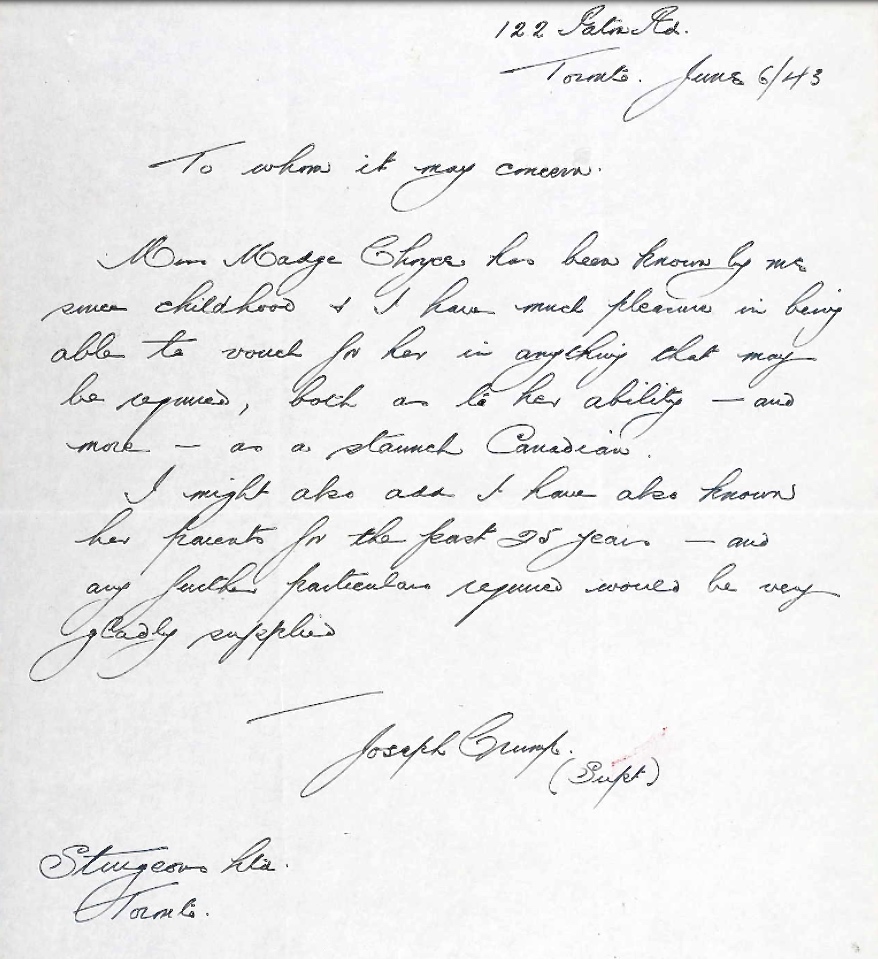 122 Eaton Rd.
Toronto. June 6/43
To whom it may concern.
Miss Madge Choyce has been known by me
since childhood & I have much pleasure in being
able to vouch for her in anything that may
be required, both as to her ability – and
more – as a staunch Canadian.
I might also add I have also known
her parents for the past 25 years – and
any further particulars required would be very
gladly supplied
Joseph Crump.
(Supt)
Sturgeons Ltd.
Toronto.